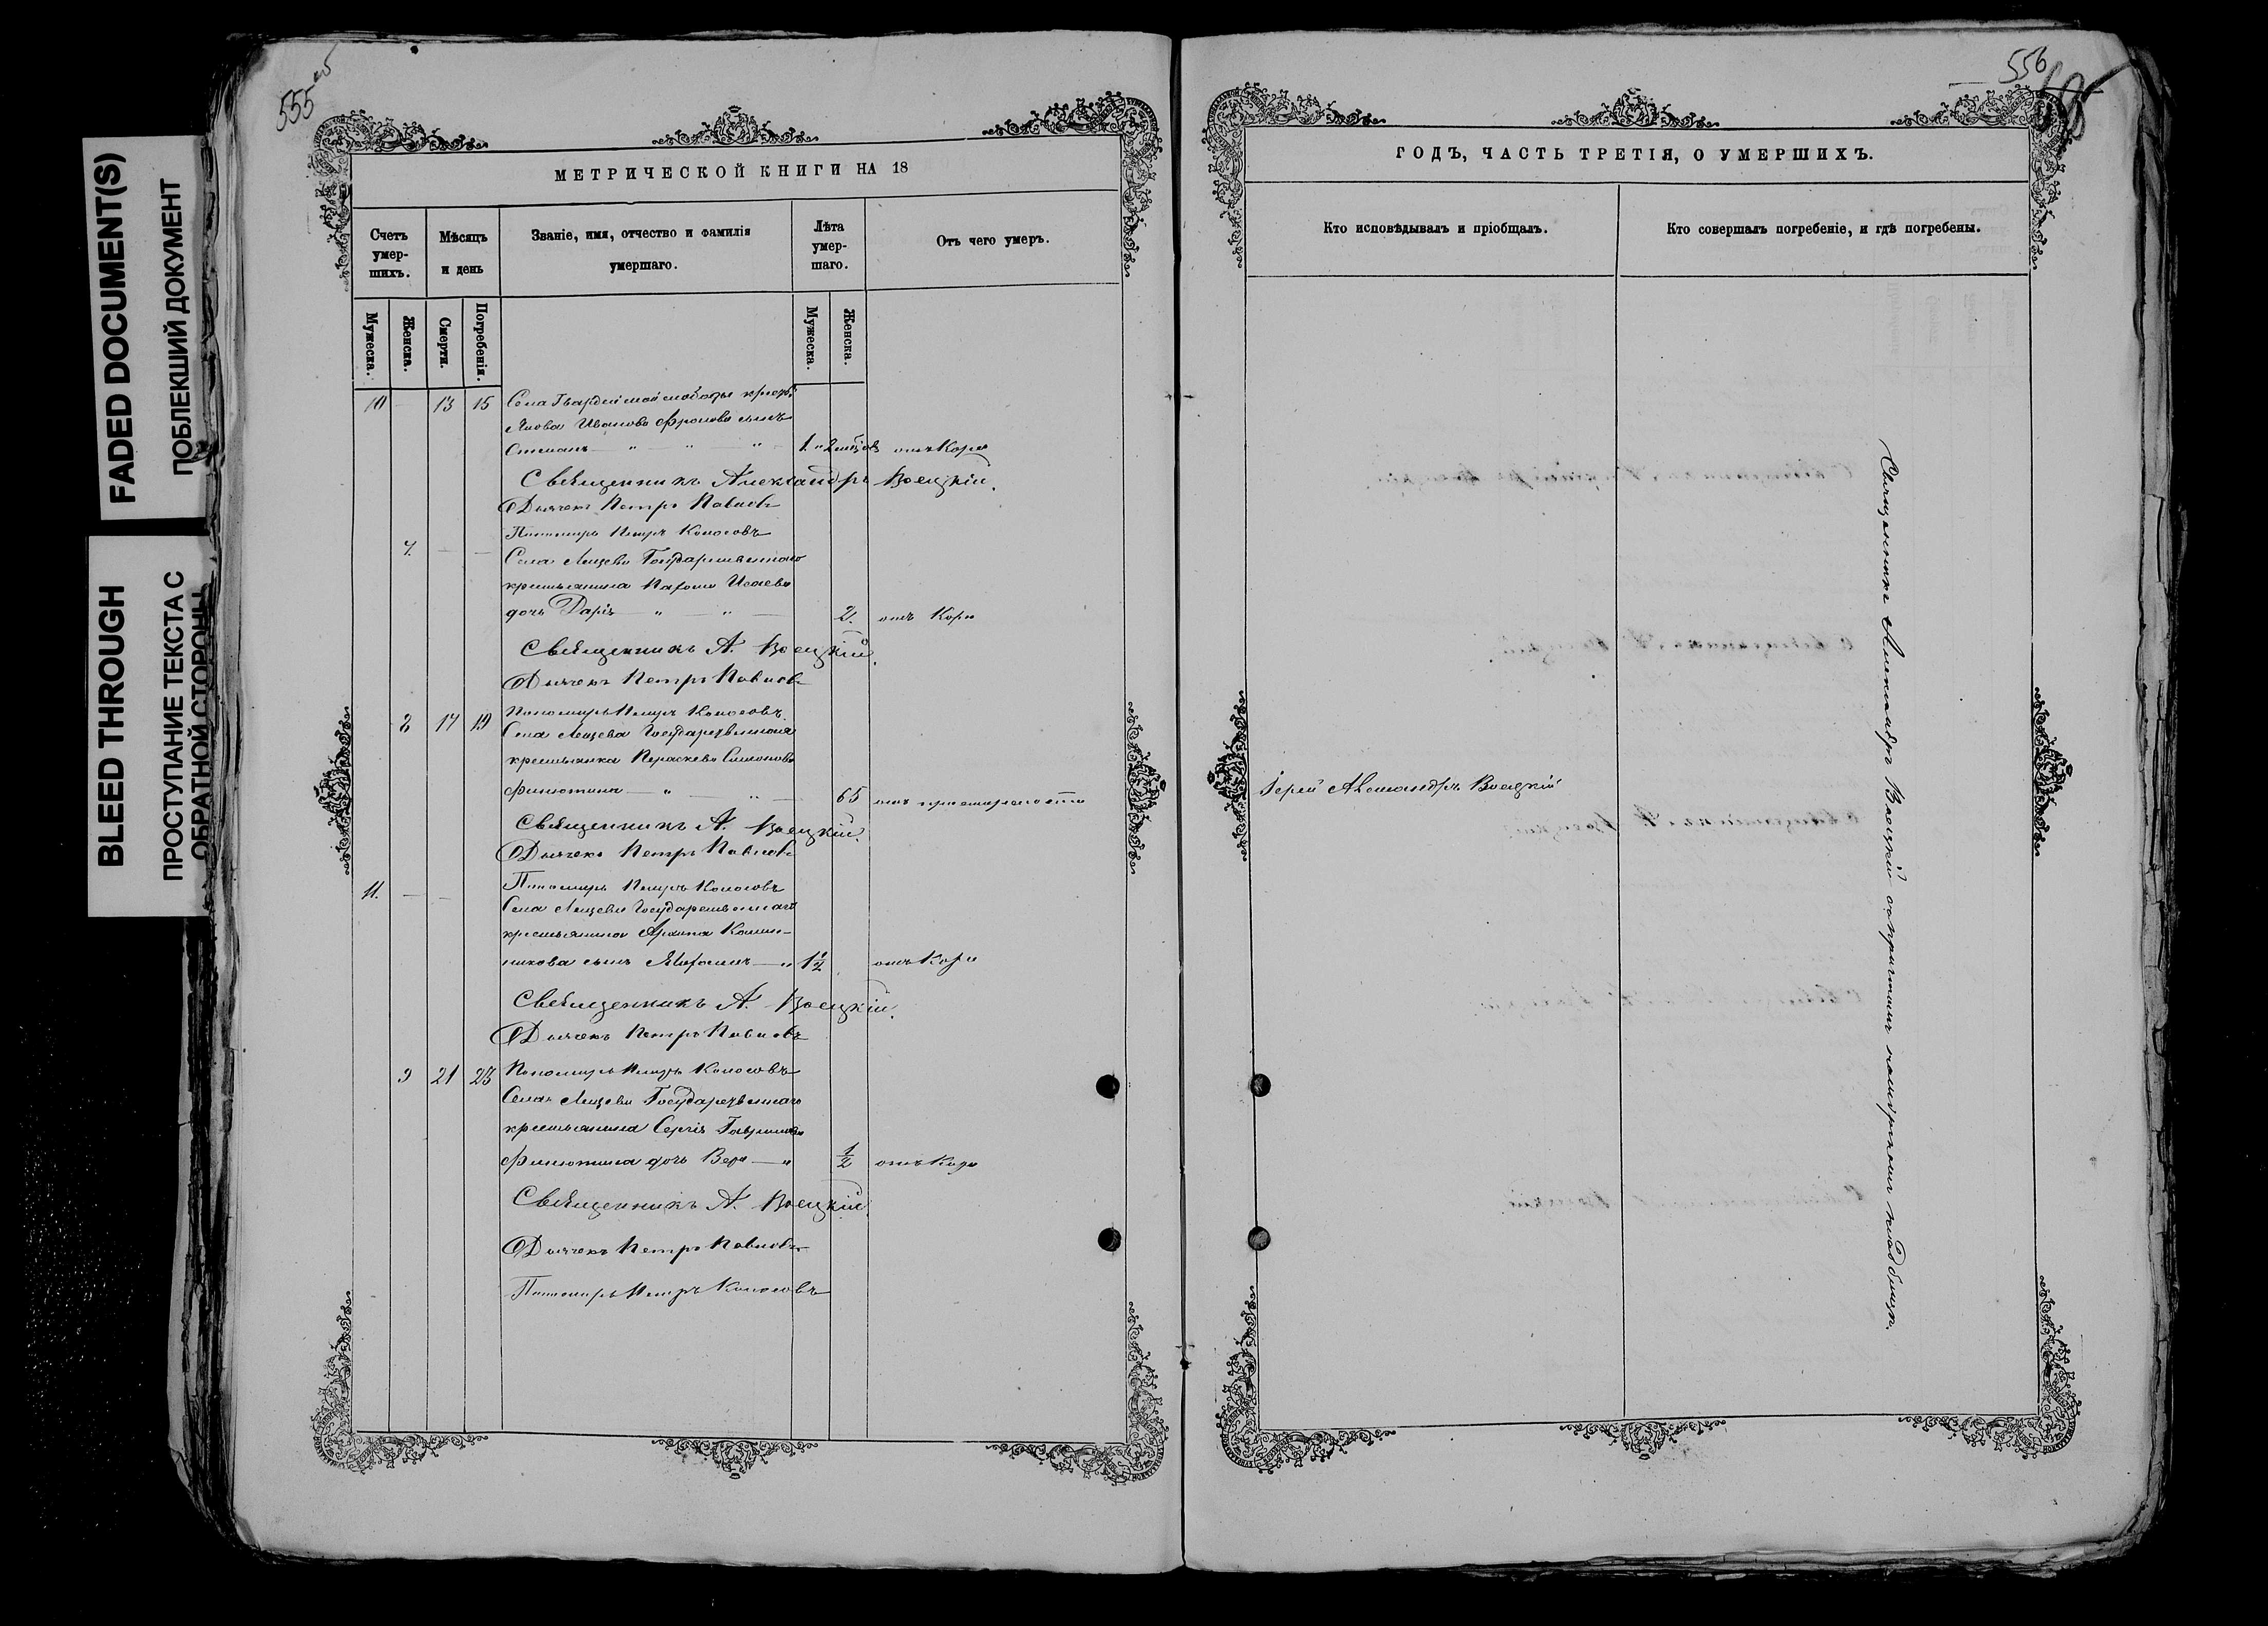 FADED DOCUMENT(S)
ПОБЛЕКШИЙ ДОКУМЕНТ
BLEED THROUGH
ПРОСТУПАНИЕ ТЕКСТА С
ОБРАТНОЙ СТОРОНЫ
555 об
МЕТРИЧЕСКОЙ КНИГИ НА 18
Счетъ умер-шихъ.
Мѣсяцъ и день
Званіе, имя, отчество и фамилія умершаго.
Лѣта умер-шаго.
Отъ чего умеръ.
Мужеска.
Женска.
Смерти.
Погребенія.
Мужеска.
Женска.
10 — 13 15 Села Гвардейской слободы крест.
Иванова Фролова сынъ
Степанъ — " — " — " — 1 " отъ Кори
Священникъ Александръ Воецкій.
Дьячекъ Петръ Павловъ
Пономарь Петръ Колосовъ
7. — — Села Лещева Государственнаго
крестьянина Исаева
дочь Дарія — " — " — 2. отъ Кори
Священникъ А. Воецкій.
Дьячекъ Петръ Павловъ
Пономарь Петръ Колосовъ.
8 17 19 Села Лещева Государственная
крестьянка Параскева Симонова
Филютина — " — " — 65 отъ престарелости
Священникъ А. Воецкій.
Дьячекъ Петръ Павловъ
Пономарь Петръ Колосовъ
11. — — Села Лещева Государственнаго
крестьянина
сынъ — " 1 1/2 отъ Кори
Священникъ А. Воецкій.
Дьячекъ Петръ Павловъ
Пономарь Петръ Колосовъ
9 21 23 Села Лещева Государственнаго
крестьянина Сергія Гаврилова
Филютина дочь Вера — " 1/2 отъ Кори
Священникъ А. Воецкій.
Дьячекъ Петръ Павловъ
Пономарь Петръ Колосовъ
556
ГОДЪ, ЧАСТЬ ТРЕТІЯ, О УМЕРШИХЪ.
Кто исповѣдывалъ и пріобщалъ.
Кто совершалъ погребеніе, и гдѣ погребены.
Іерей Александръ Воецкій
Священникъ Александръ Воецкій съ причтомъ на кладбище.